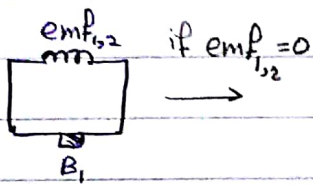 emf₁,₂
if emf₁,₂ = 0
B₁